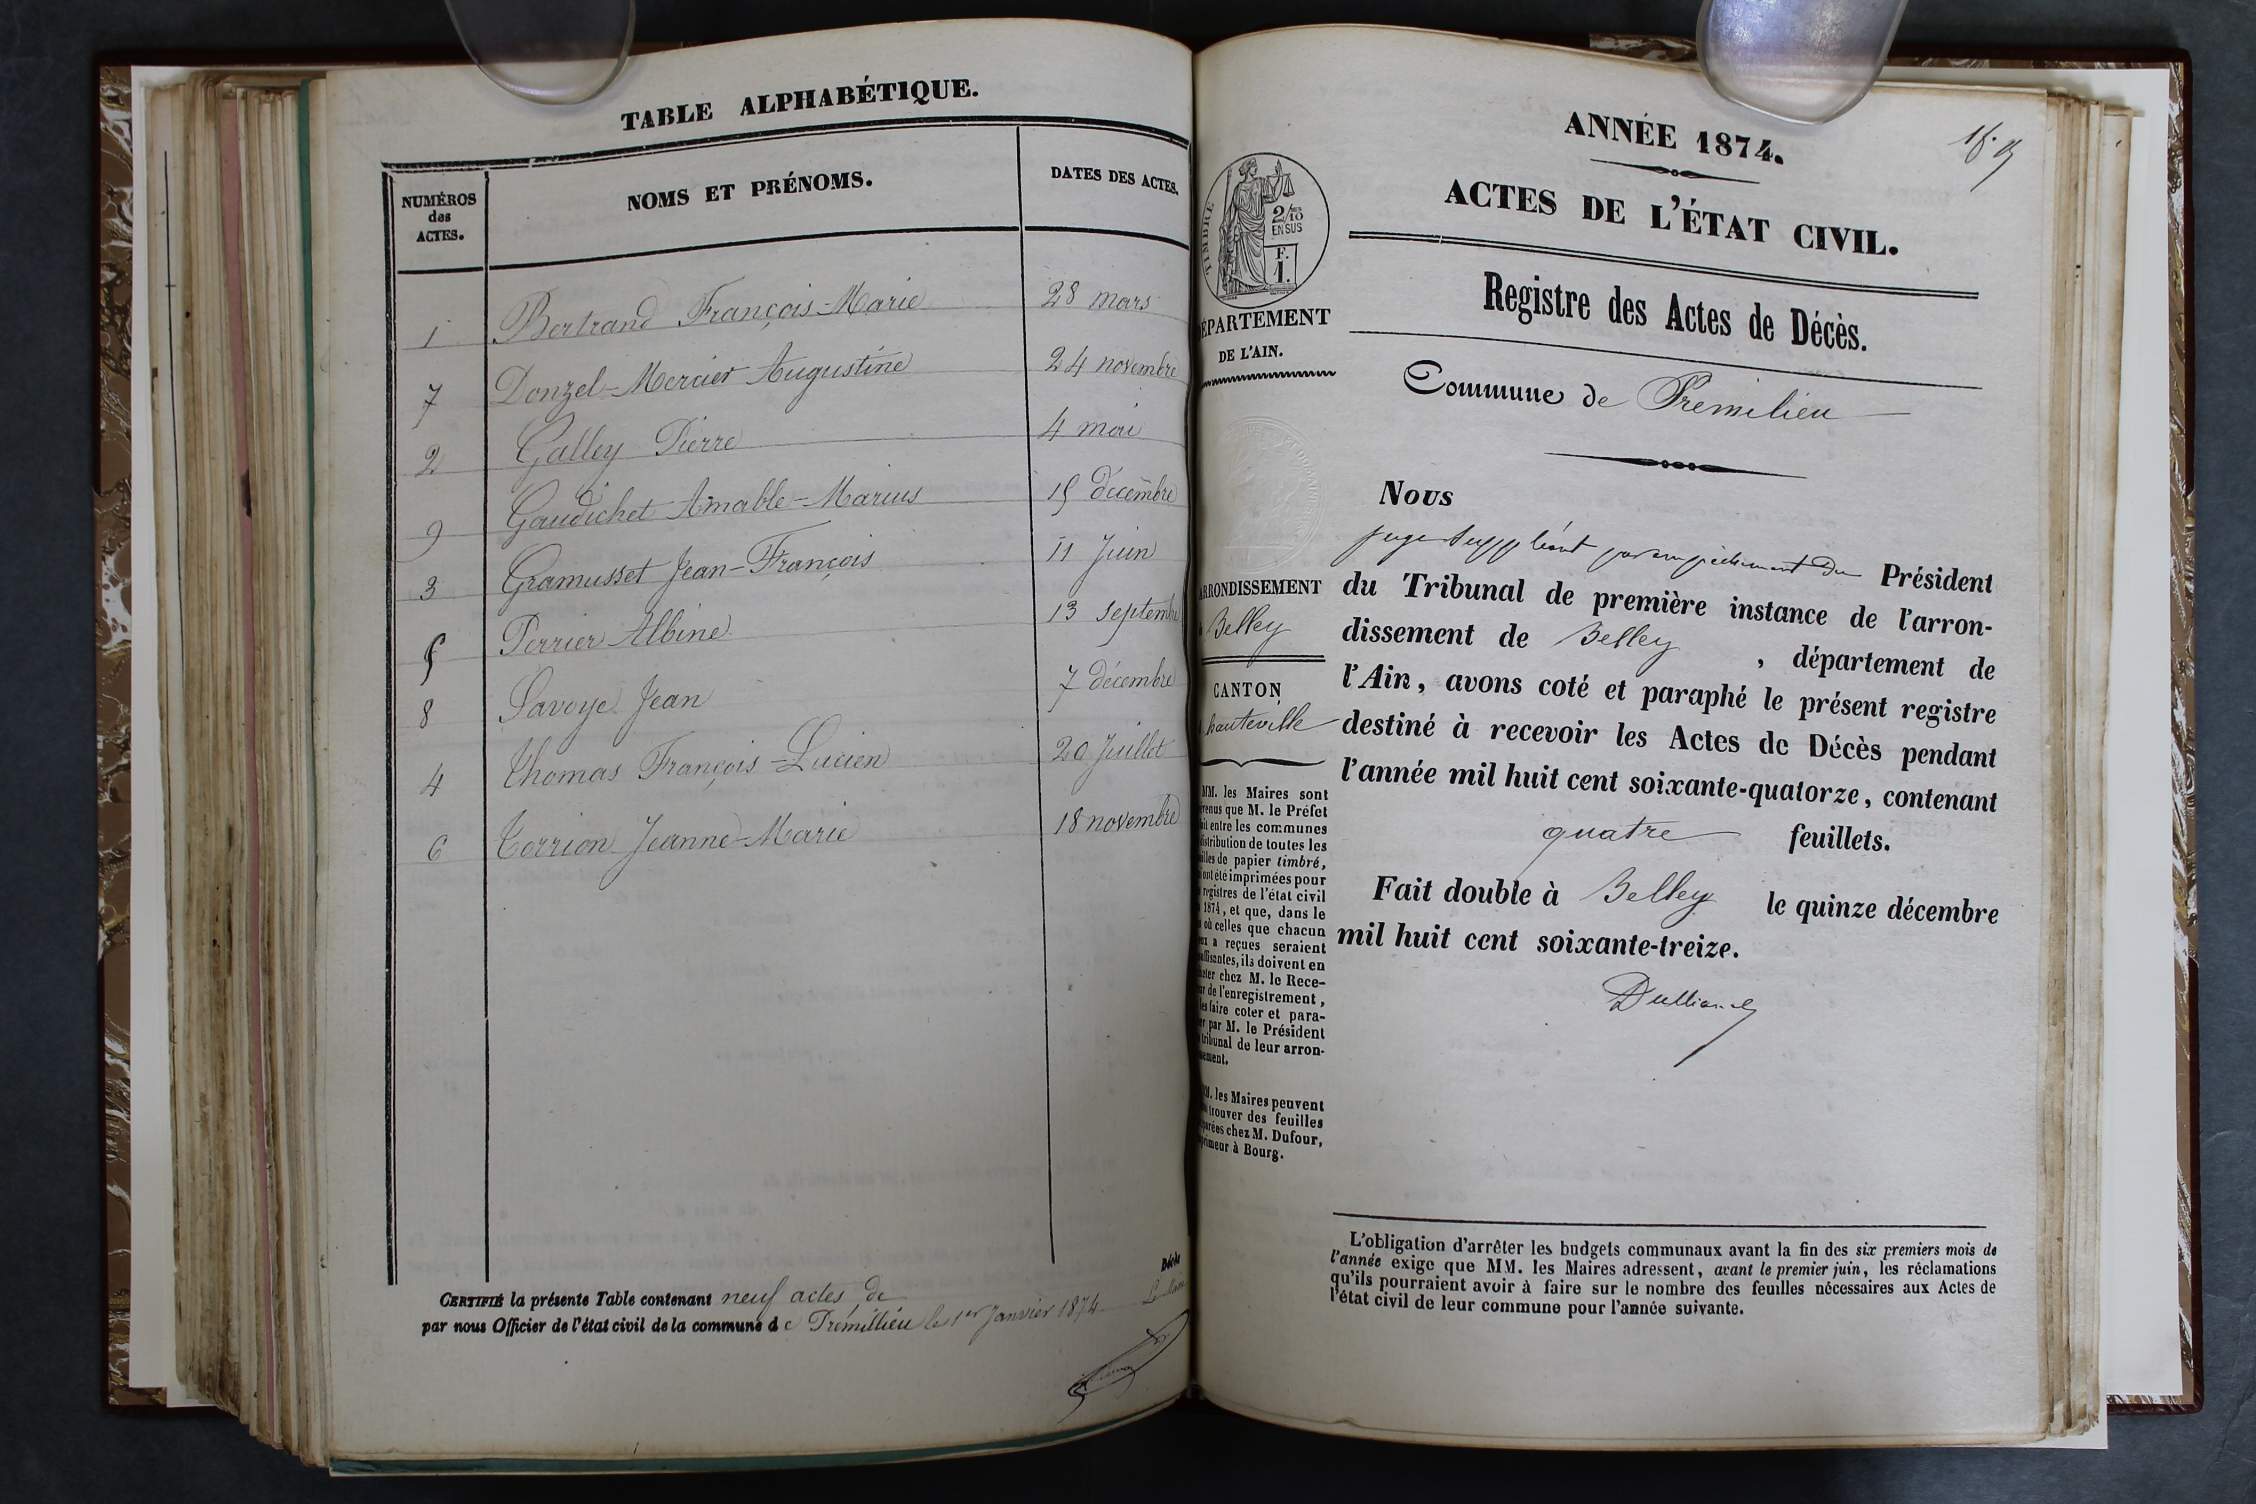 TABLE ALPHABÉTIQUE.
NUMÉROS
des
ACTES.
NOMS ET PRÉNOMS.
DATES DES ACTES.
1 Bertrand François-Marie 28 mars
7 Donzel-Mercier Augustine 24 novembre
2 Galley Pierre 4 mai
9 Gaudichet Amable-Marius 15 décembre
3 Gramusset Jean-François 11 Juin
5 Perrier Albine 13 septembre
8 Savoye Jean 7 décembre
4 Thomas François-Lucien 20 Juillet
6 Torrion Jeanne-Marie 18 novembre
CERTIFIÉ la présente Table contenant neuf actes de Décès
par nous Officier de l'état civil de la commune de Prémillieu le 1er Janvier 1874 Le Maire
ANNÉE 1874.
ACTES DE L'ÉTAT CIVIL.
Registre des Actes de Décès.
TIMBRE
2/10
EN SUS
F.
1.
DÉPARTEMENT
DE L'AIN.
Commune de Premilieu
ARRONDISSEMENT
Belley
CANTON
hauteville
MM. les Maires sont
prévenus que M. le Préfet
fait entre les communes
distribution de toutes les
feuilles de papier timbré,
qui ont été imprimées pour
les registres de l'état civil
1874, et que, dans le
cas où celles que chacun
d'eux a reçues seraient
insuffisantes, ils doivent en
acheter chez M. le Rece-
veur de l'enregistrement,
les faire coter et para-
pher par M. le Président
tribunal de leur arron-
dissement.
MM. les Maires peuvent
trouver des feuilles
préparées chez M. Dufour,
imprimeur à Bourg.
Nous
juge suppléant par empêchement du Président
du Tribunal de première instance de l'arron-
dissement de Belley, département de
l'Ain, avons coté et paraphé le présent registre
destiné à recevoir les Actes de Décès pendant
l'année mil huit cent soixante-quatorze, contenant
quatre feuillets.
Fait double à Belley le quinze décembre
mil huit cent soixante-treize.
L'obligation d'arrêter les budgets communaux avant la fin des six premiers mois de
l'année exige que MM. les Maires adressent, avant le premier juin, les réclamations
qu'ils pourraient avoir à faire sur le nombre des feuilles nécessaires aux Actes de
l'état civil de leur commune pour l'année suivante.